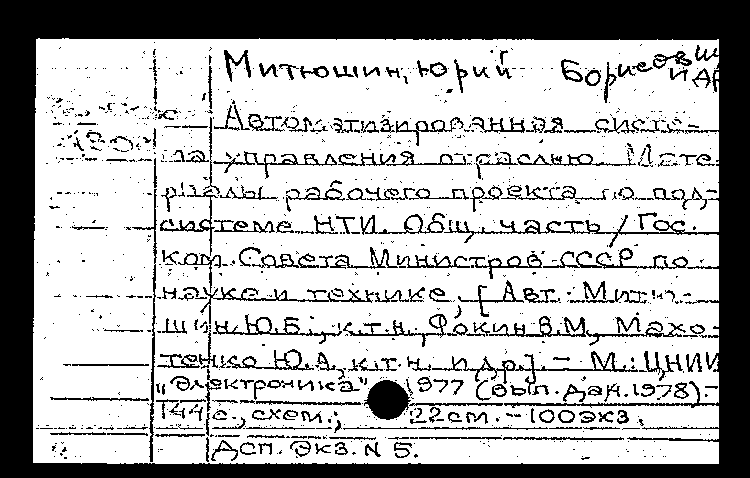 Митюшин, Юрий Борисович
и др
Автоматизированная систе-
ма управления отраслью. Мате-
риалы рабочего проекта по под-
системе НТИ. Общ. часть / Гос.
ком. Совета Министров СССР по
науке и технике; [Авт.: Митю-
шин Ю.Б., к.т.н., Фокин В.М., Махо-
тенко Ю.А., к.т.н. и др.]. – М.: ЦНИИ
"Электроника" 1977 (вып. дан. 1978). –
144 с., схем.; 22 см. – 100 экз.
Дсп. Экз. N 5.